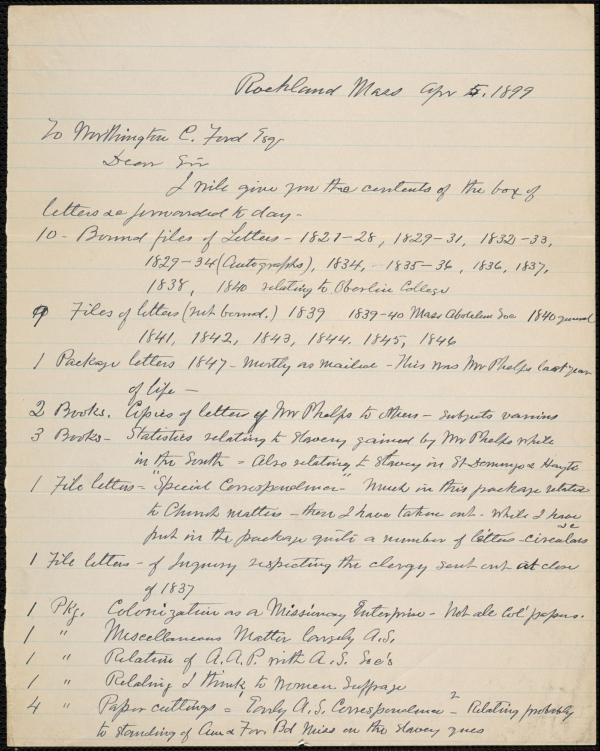 Rockland Mass Apr 5, 1899
To Worthington C. Ford Esq
Dear Sir
I will give you the contents of the box of
letters &c forwarded to day -
10 - Bound files of Letters - 1827-28, 1829-31, 1832-33,
1829-34 (Autographs), 1834, - 1835-36, 1836, 1837,
1838, 1840 relating to Oberlin College
9 Files of letters (not bound.) 1839 1839-40 Mass Abolition Soc 1840 general
1841, 1842, 1843, 1844. 1845, 1846
1 Package letters 1847 - mostly as mailed - This was Mr Phelps last year
of life -
2 Books. Copies of letters of Mr Phelps to others - subjects various
3 Books - Statistics relating to Slavery gained by Mr Phelps while
in the South = Also relating to Slavery in St Domingo & Hayti
1 File letters = "Special Correspondence" - Much in this package related
to Church matters - then I have taken out - while I have
put in the package quite a number of letters - circulars &c
1 File letters - of Inquiry respecting the clergy sent out at close
of 1837
1 Pkg. Colonization as a Missionary Enterprise - Not all Col' papers.
1 " Miscellaneous Matter largely A.S.
1 " Relation of A.A.P. with A.S. Soc's
1 " Relating I think to Women Suffrage
4 " Paper cuttings = Early A.S. Correspondence - 2 Relating probably
to standing of Am & For. Bd Miss on the slavery ques